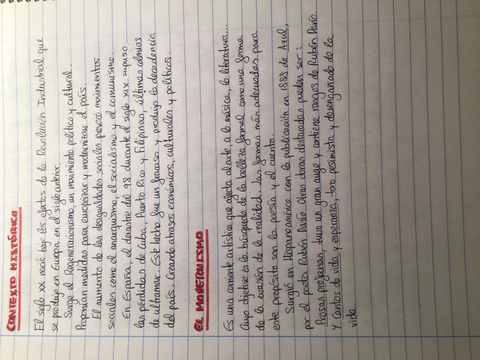 CONTEXTO HISTÓRICO
El siglo XX nació bajo los efectos de la Revolución Industrial que
se produjo en Europa en el siglo anterior.
Surge el Regeneracionismo, un movimiento político y cultural.
Proponían medidas para europeizar y modernizar el país.
El aumento de las desigualdades sociales movimientos
sociales como el anarquismo, el socialismo y el comunismo.
En España, el desastre del 98 durante el siglo XIX supuso
las pérdidas de Cuba, Puerto Rico y Filipinas, últimas colonias
de ultramar. Este hecho que un fracaso y produjo la decadencia
del país. Creando atrasos económicos, culturales y políticos.
EL MODERNISMO
Es una corriente artística que afecta al arte a la música, la literatura...
Cuyo objetivo es la búsqueda de la belleza formal como una forma
de la evasión de la realidad. Las formas más adecuadas para
este propósito son la poesía y el cuento.
Surgió en Hispanoamérica con la publicación en 1888 de Azul,
por el poeta Rubén Darío. Otras obras destacadas pueden ser:
Prosas profanas, tuvo un gran auge y contiene rasgos de Rubén Darío.
Y Cantos de vida y esperanza, tono pesimista y desengañado de la
vida.